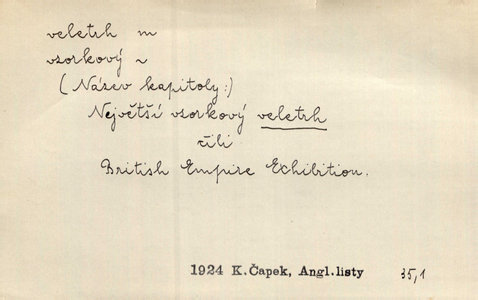 veletrh m
vzorkový ~
(Název kapitoly:)
Největší vzorkový veletrh
čili
British Empire Exhibition.
1924 K. Čapek, Angl. listy 35,1